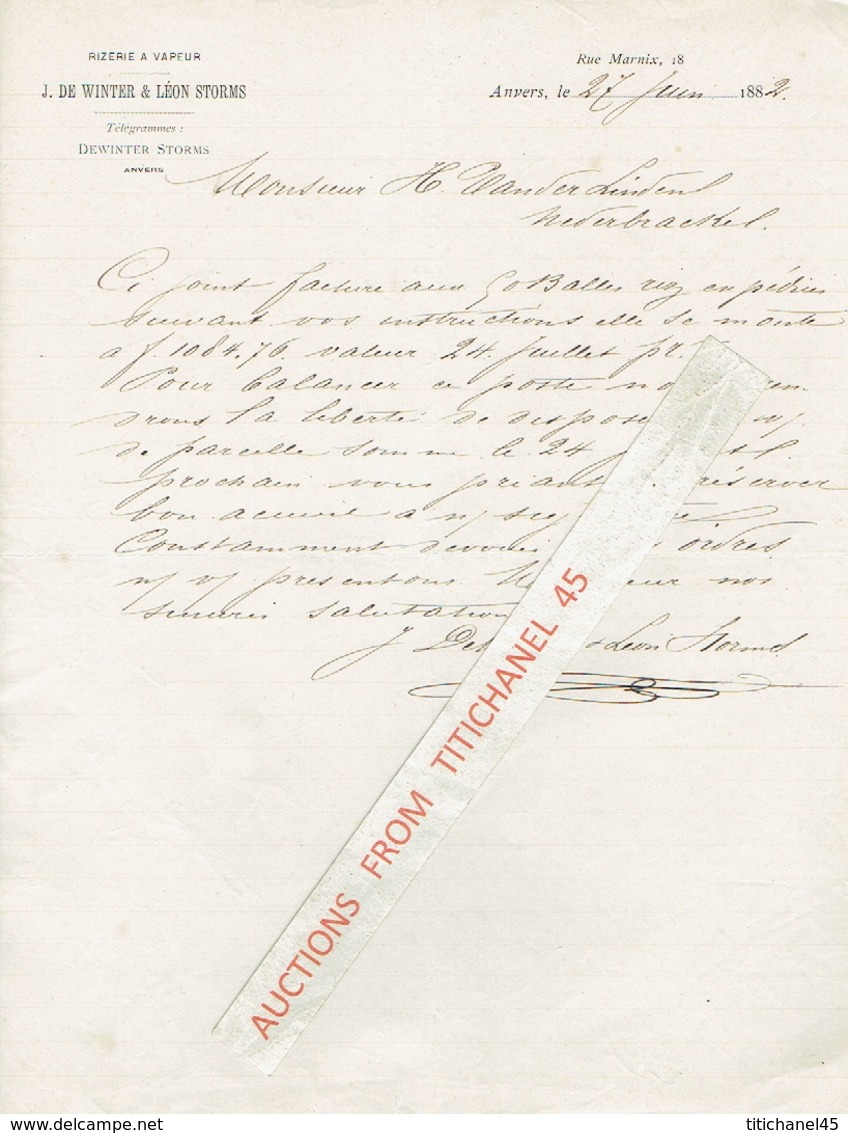 RIZERIE A VAPEUR
J. DE WINTER & LÉON STORMS
Télégrammes :
DEWINTER STORMS
ANVERS
Rue Marnix, 18
Anvers, le 27 Juin 1882.
Monsieur H. Vander Linden
Nederbrackel.
Ci joint facture aux 50 Balles riz expédiées
suivant vos instructions elle se monte
a f. 1084.76. valeur 24. Juillet pr.
Pour balancer ce poste
drons la liberté de
de pareille somme le 24
prochain vous priant réserver
bon accueil a n/
Constamment ordres
n/ v/ présentons nos
salutation
J De & Léon Storms
AUCTIONS FROM TITICHANEL 45
www.delcampe.net
titichanel45